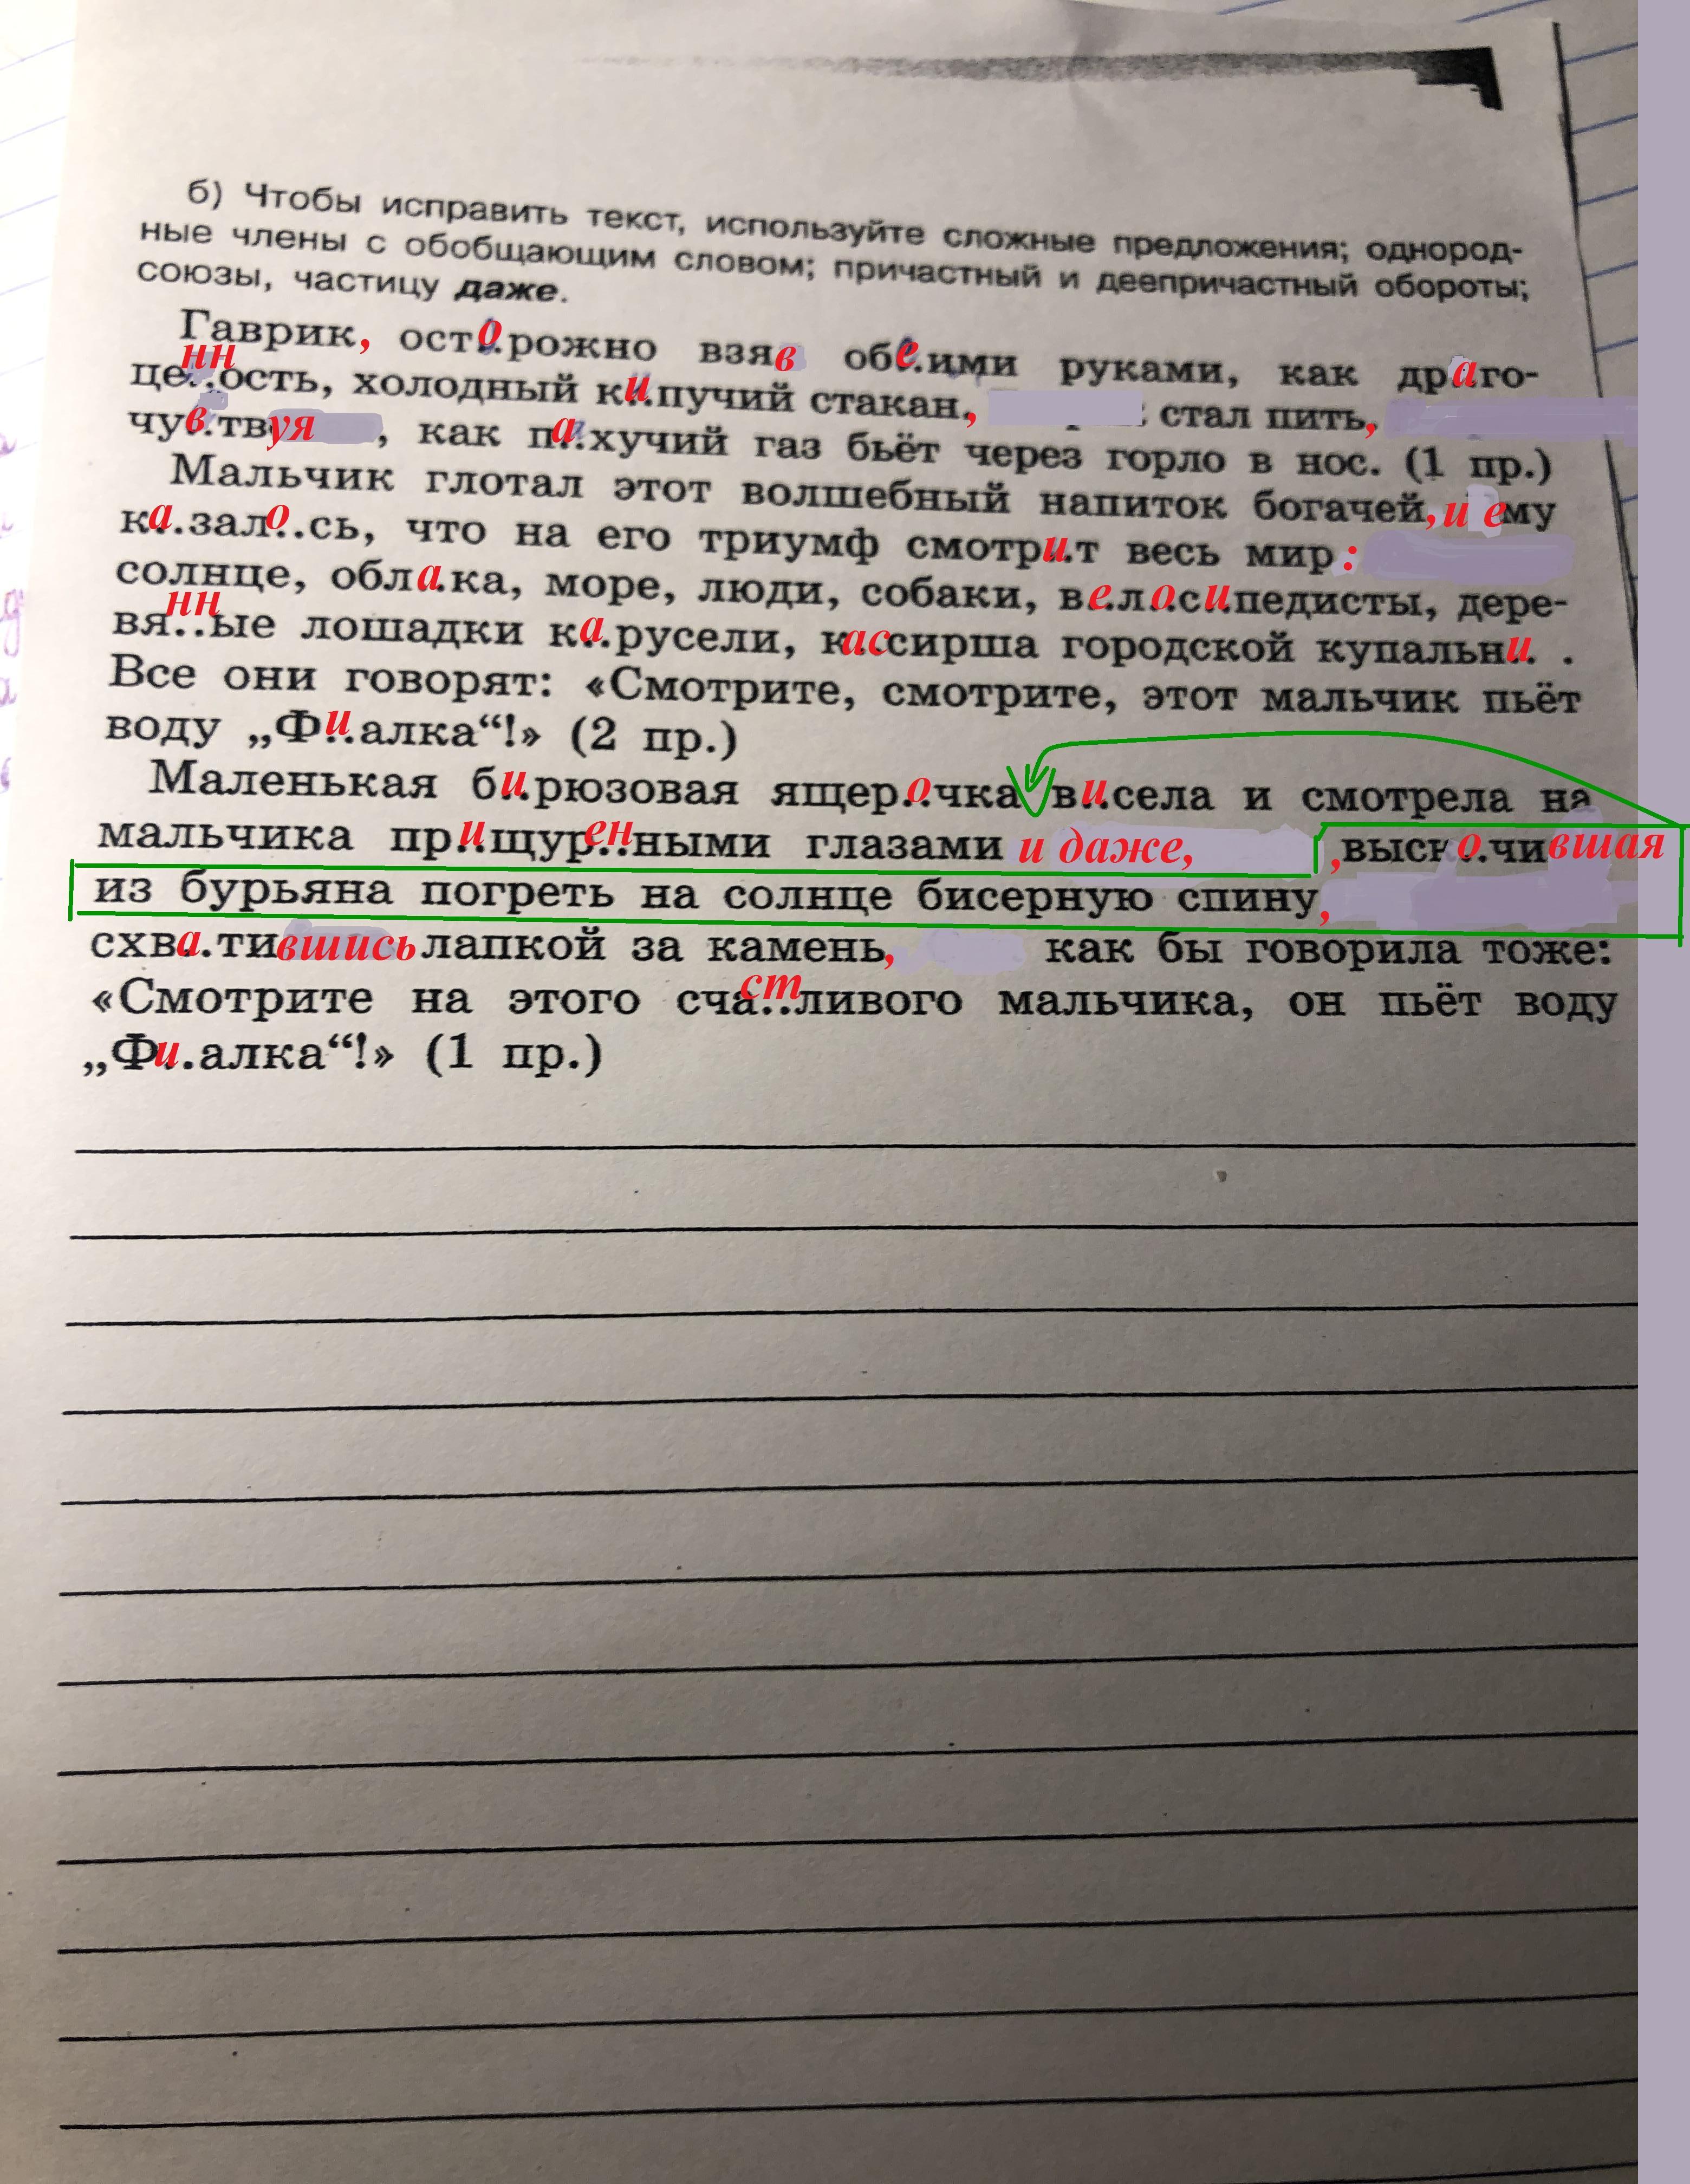 б) Чтобы исправить текст, используйте сложные предложения; однород-
ные члены с обобщающим словом; причастный и деепричастный обороты;
союзы, частицу даже.
Гаврик, осто.рожно взяв обе.ими руками, как драго-
ценн..ость, холодный ки.пучий стакан, стал пить,
чув.твуя, как па.хучий газ бьёт через горло в нос. (1 пр.)
Мальчик глотал этот волшебный напиток богачей, и ему
ка.зало.сь, что на его триумф смотри.т весь мир:
солнце, обла.ка, море, люди, собаки, ве.ло.си.педисты, дере-
вянн..ые лошадки ка.русели, кассирша городской купальни. .
Все они говорят: «Смотрите, смотрите, этот мальчик пьёт
воду „Фи..алка“!» (2 пр.)
Маленькая би.рюзовая ящеро.чка ви.села и смотрела на
мальчика при.щурен..ными глазами и даже, ,выско.чившая
из бурьяна погреть на солнце бисерную спину,
схва.тившись лапкой за камень, как бы говорила тоже:
«Смотрите на этого счаст..ливого мальчика, он пьёт воду
„Фи.алка“!» (1 пр.)